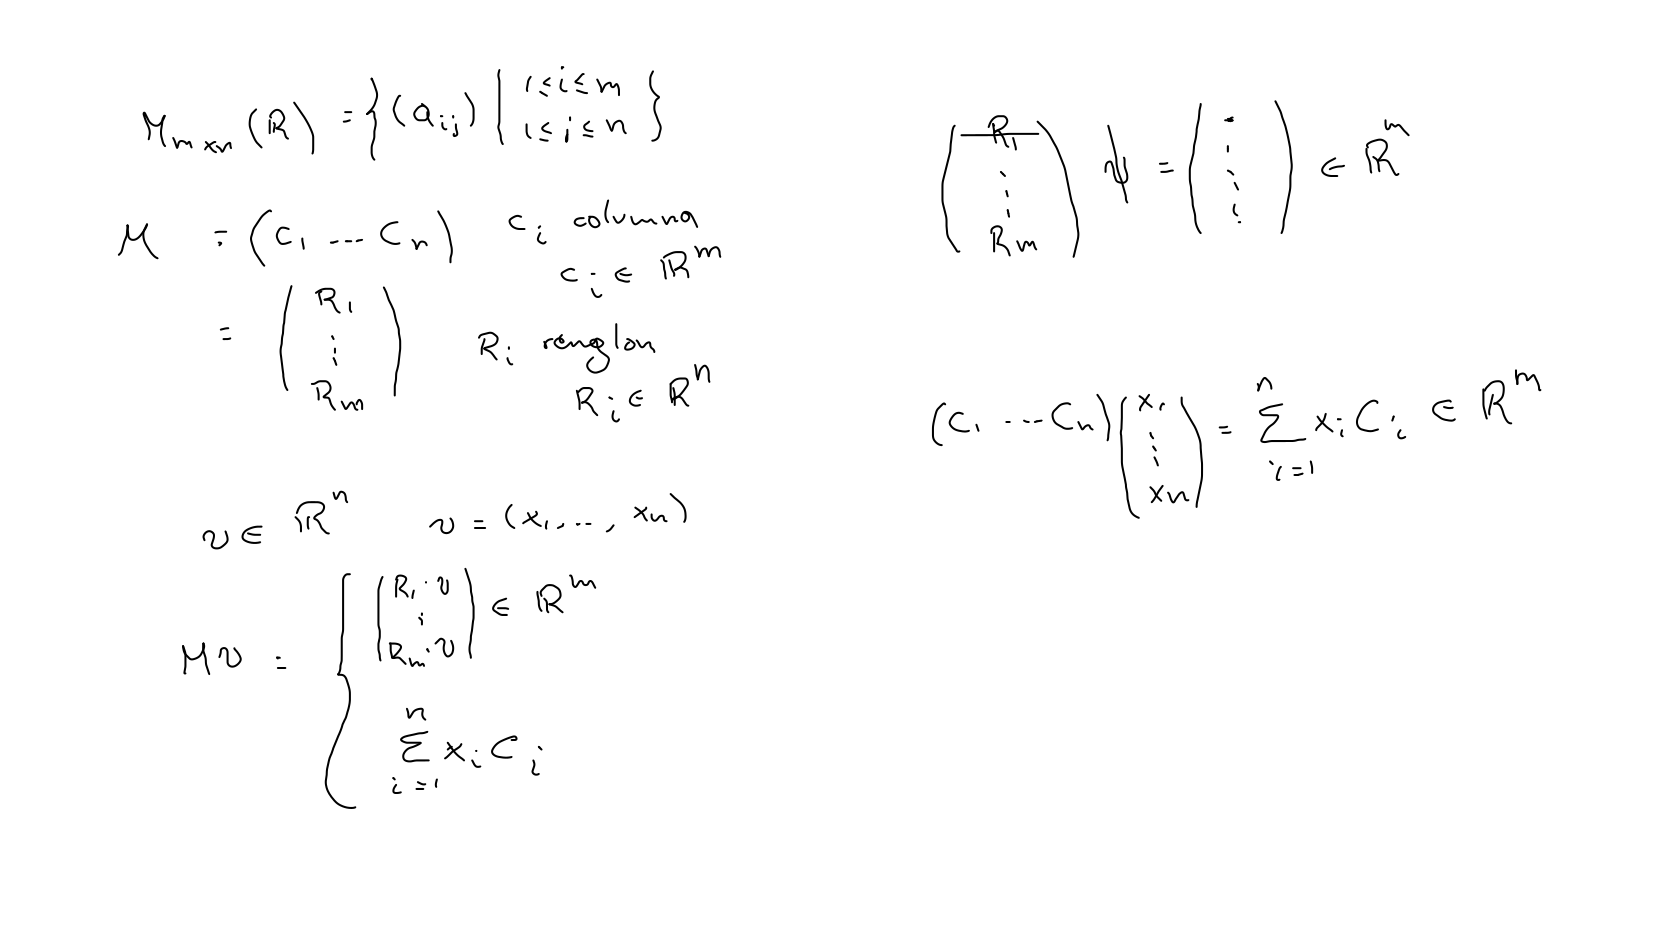 M_{m×n}(ℝ) = { (a_{ij}) | 1≤i≤m 1≤j≤n }
M = (C_1 --- C_n) C_i columna
C_i ∈ ℝ^m
= ( R_1 ⋮ R_m ) R_i renglon
R_i ∈ ℝ^n
v ∈ ℝ^n v = (x_1, ..., x_n)
Mv = { ( R_1·v ⋮ R_m·v ) ∈ ℝ^m
∑_{i=1}^{n} x_i C_i
( R_1 ⋮ R_m ) v = ( · ⋮ ) ∈ ℝ^m
(C_1 --- C_n) ( x_1 ⋮ x_n ) = ∑_{i=1}^{n} x_i C_i ∈ ℝ^m